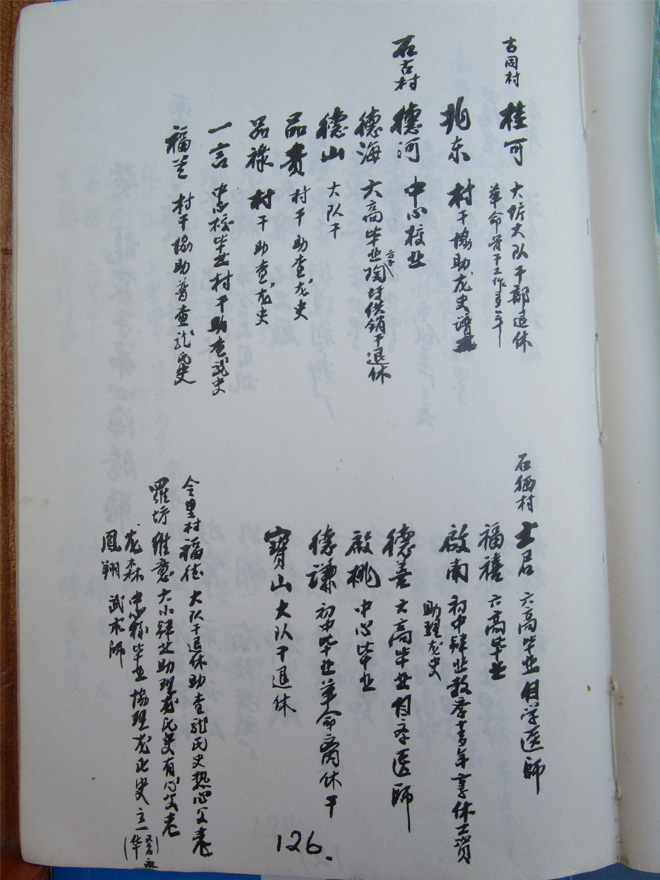 古同村
桂可 大圻大队干部退休
革命骨干工作多年
兆东 村干协助龙史谱
石古村
德河 中心校业
德海 大高毕业陶圩供销干退休
德山 大队干
品贵 村干助查龙史
品禄 村干助查龙史
一言 中心校毕业村干助查龙史
福兰 村干协助普查龙氏史
石狮村
士君 六高毕业自学医师
福禧 六高毕业
啟南 初中肄业教学青年享休工资
助理龙史
德善 六高毕业自学医师
啟桃 中心毕业
德谦 初中毕业革命离休干
寶山 大队干退休
仝里村 福德 大队干退休助查龙氏史热心父老
羅坊 維意 大小肄业助理龙氏史有心父老
龙森 中心校毕业协理龙氏史
鳳翔 武术师
126.